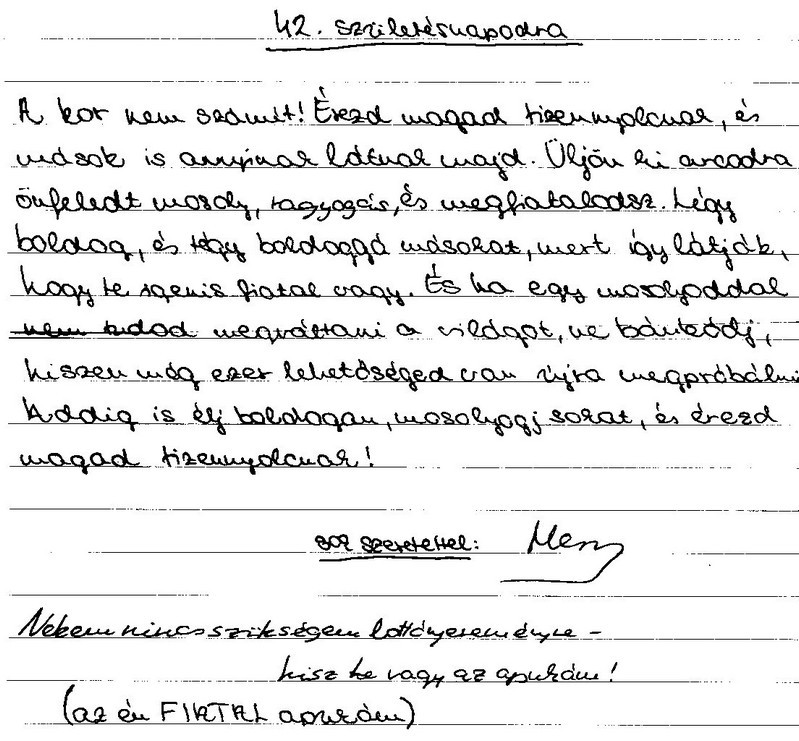 42. születésnapodra
A kor nem számít! Érezd magad tizennyolcnak, és
mások is annyinak látnak majd. Üljön ki arcodra
önfeledt mosoly, ragyogás, és megfiatalodsz. Légy
boldog, és tégy boldoggá másokat, mert így látják,
hogy te igenis fiatal vagy. És ha egy mosolyoddal
nem tudod megváltani a világot, ne bánkódj,
hiszen még ezer lehetőséged van újra megpróbálni
Addig is élj boldogan, mosolyogj sokat, és érezd
magad tizennyolcnak!
sok szeretettel:
Nekem nincs szükségem lottónyereményre -
hisz te vagy az apukám!
(az én FIATAL apukám)